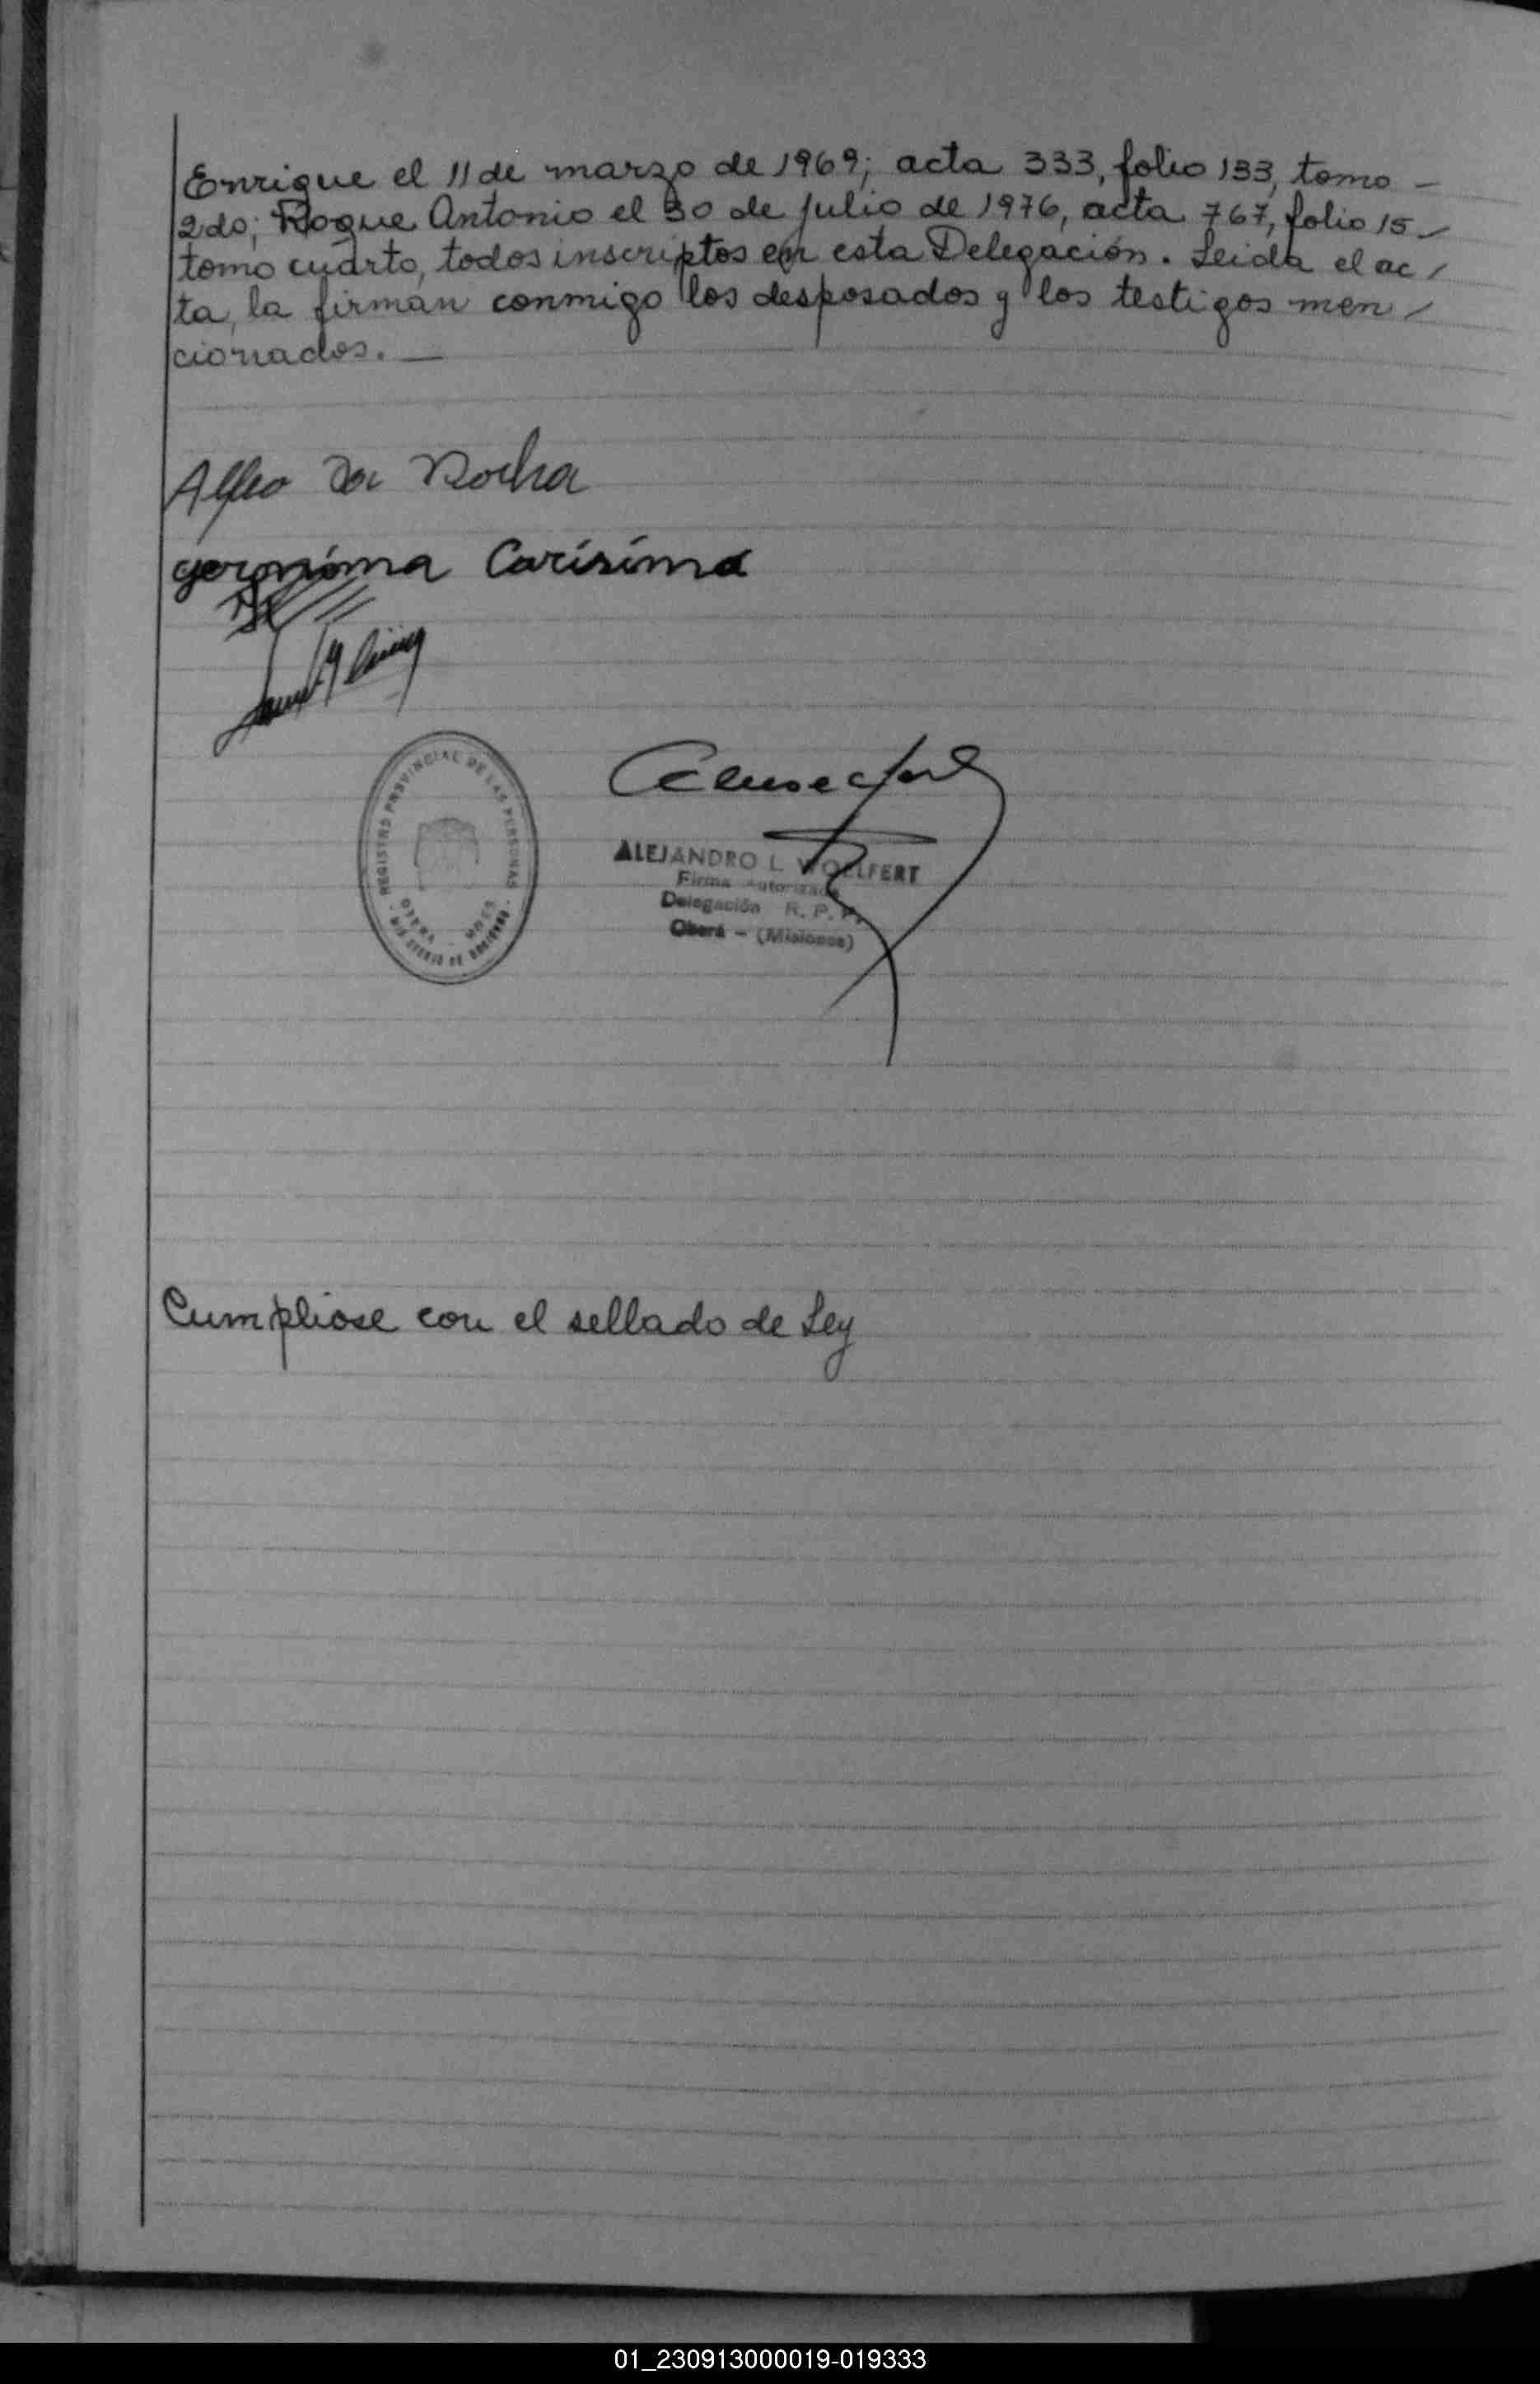 Enrique el 11 de marzo de 1969; acta 333, folio 133, tomo -
2do; Roque Antonio el 30 de julio de 1976, acta 767, folio 15 -
tomo cuarto, todos inscriptos en esta Delegación. Leida el ac /
ta, la firman conmigo los desposados y los testigos men /
cionados. —
Alfeo Da Rocha
geronima Carisima
REGISTRO PROVINCIAL DE LAS PERSONAS
OBERA - MNES
MINISTERIO DE GOBIERNO
ALEJANDRO L. WOELFERT
Firma Autorizada
Delegación R. P. P.
Oberá - (Misiones)
Cumpliose con el sellado de Ley
01_230913000019-019333